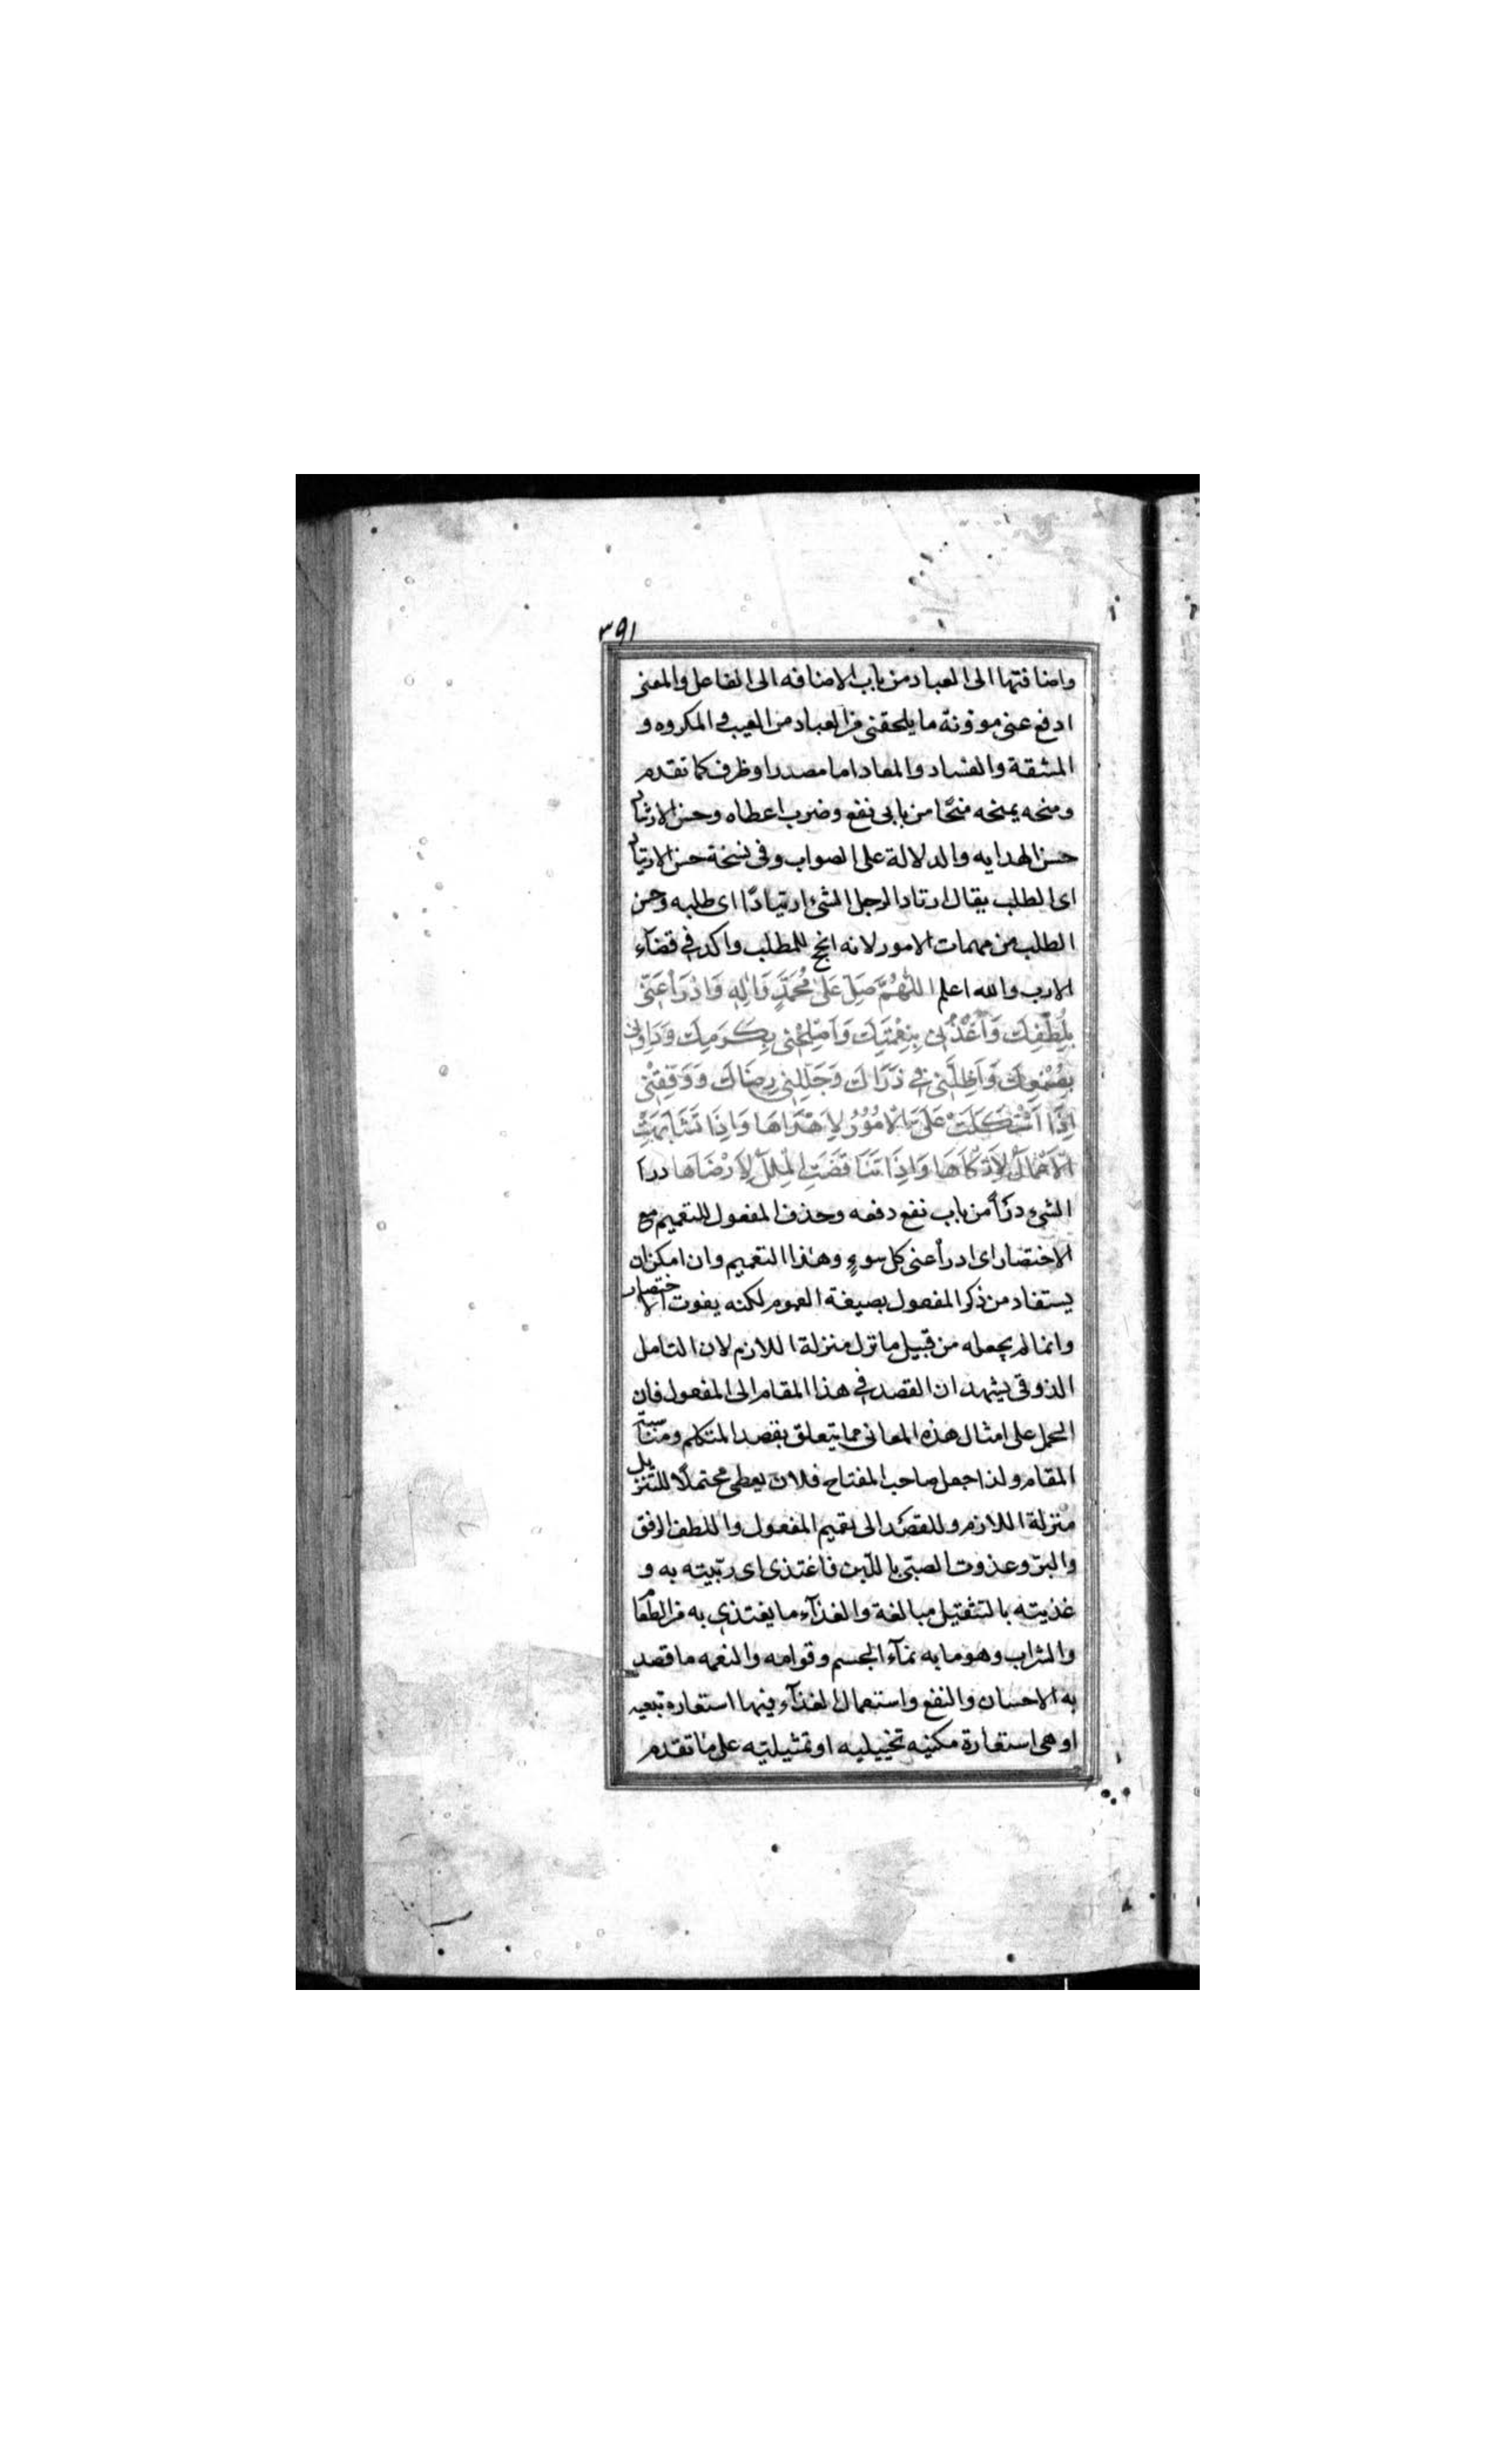 ٣٩١
واضافتها الى العباد من باب الاضافه الى الفاعل والمعنى
ادفع عنى موؤنة ما يلحقنى من العباد من العيب والمكروه و
المشقة والفساد والمعاد اما مصدر او ظرف كما تقدم
ومنحه يمنحه منحًا من بابى نفع وضرب اعطاه وحسن الارشاد
حسن الهدايه والدلالة على الصواب وفى نسخة حسن الارتياد
اى الطلب يقال ارتاد الرجل الشئ ارتيادًا اى طلبه وحسن
الطلب من مهمات الامور لانه انجح للمطلب واكد فى قضآء
الارب والله اعلم اللّٰهُمَّ صَلِّ عَلىٰ مُحَمَّدٍ وَاٰلِهِ وَادْرَأْ عَنّى
بِلُطْفِكَ وَاغْذُنى بِنِعْمَتِكَ وَاَصْلِحْنى بِكَرَمِكَ وَدَاوِنى
بِصُنْعِكَ وَاَظِلَّنى فى ذَرَاكَ وَجَلِّلْنى رِضَاكَ وَوَفِّقْنى
اِذَا اشْتَكَلَتْ عَلَىَّ الْاُمُوُرُ لِاَهْدَاهَا وَاِذَا تَشَابَهَتِ
الْاَعْمَالُ لِاَزْكَاهَا وَاِذَا تَنَاقَضَتِ الْمِلَلُ لِاَرْضَاهَا درا
الشئ درًأ من باب نفع دفعه وحذف المفعول للتعميم مع
الاختصار اى ادرأ عنى كل سوءٍ وهذا التعميم وان امكن ان
يستفاد من ذكر المفعول بصيغة العموم لكنه يفوت الاختصار
وانما لم يجعله من قبيل ما نزل منزلة اللازم لان التامل
الذوقى يشهد ان القصد فى هذا المقام الى المفعول فان
الحمل على امثال هذه المعانى مما يتعلق بقصد المتكلم ومناسبة
المقام ولذا جعل صاحب المفتاح فلان يعطى محتملًا للتنزيل
منزلة اللازم وللقصد الى تعميم المفعول واللطف الرفق
والبرّ وغذوت الصبّى باللّبن فاغتذى اى ربّيته به و
غذيته بالتثقيل مبالغة والغذآء ما يغتذى به من الطعام
والشراب وهو ما به نمآء الجسم وقوامه والنعمه ما قصد
به الاحسان والنفع واستعمال الغذآء فيها استعاره تبعيه
او هى استعارة مكنيه تخييليه او تمثيليّه على ما تقدم